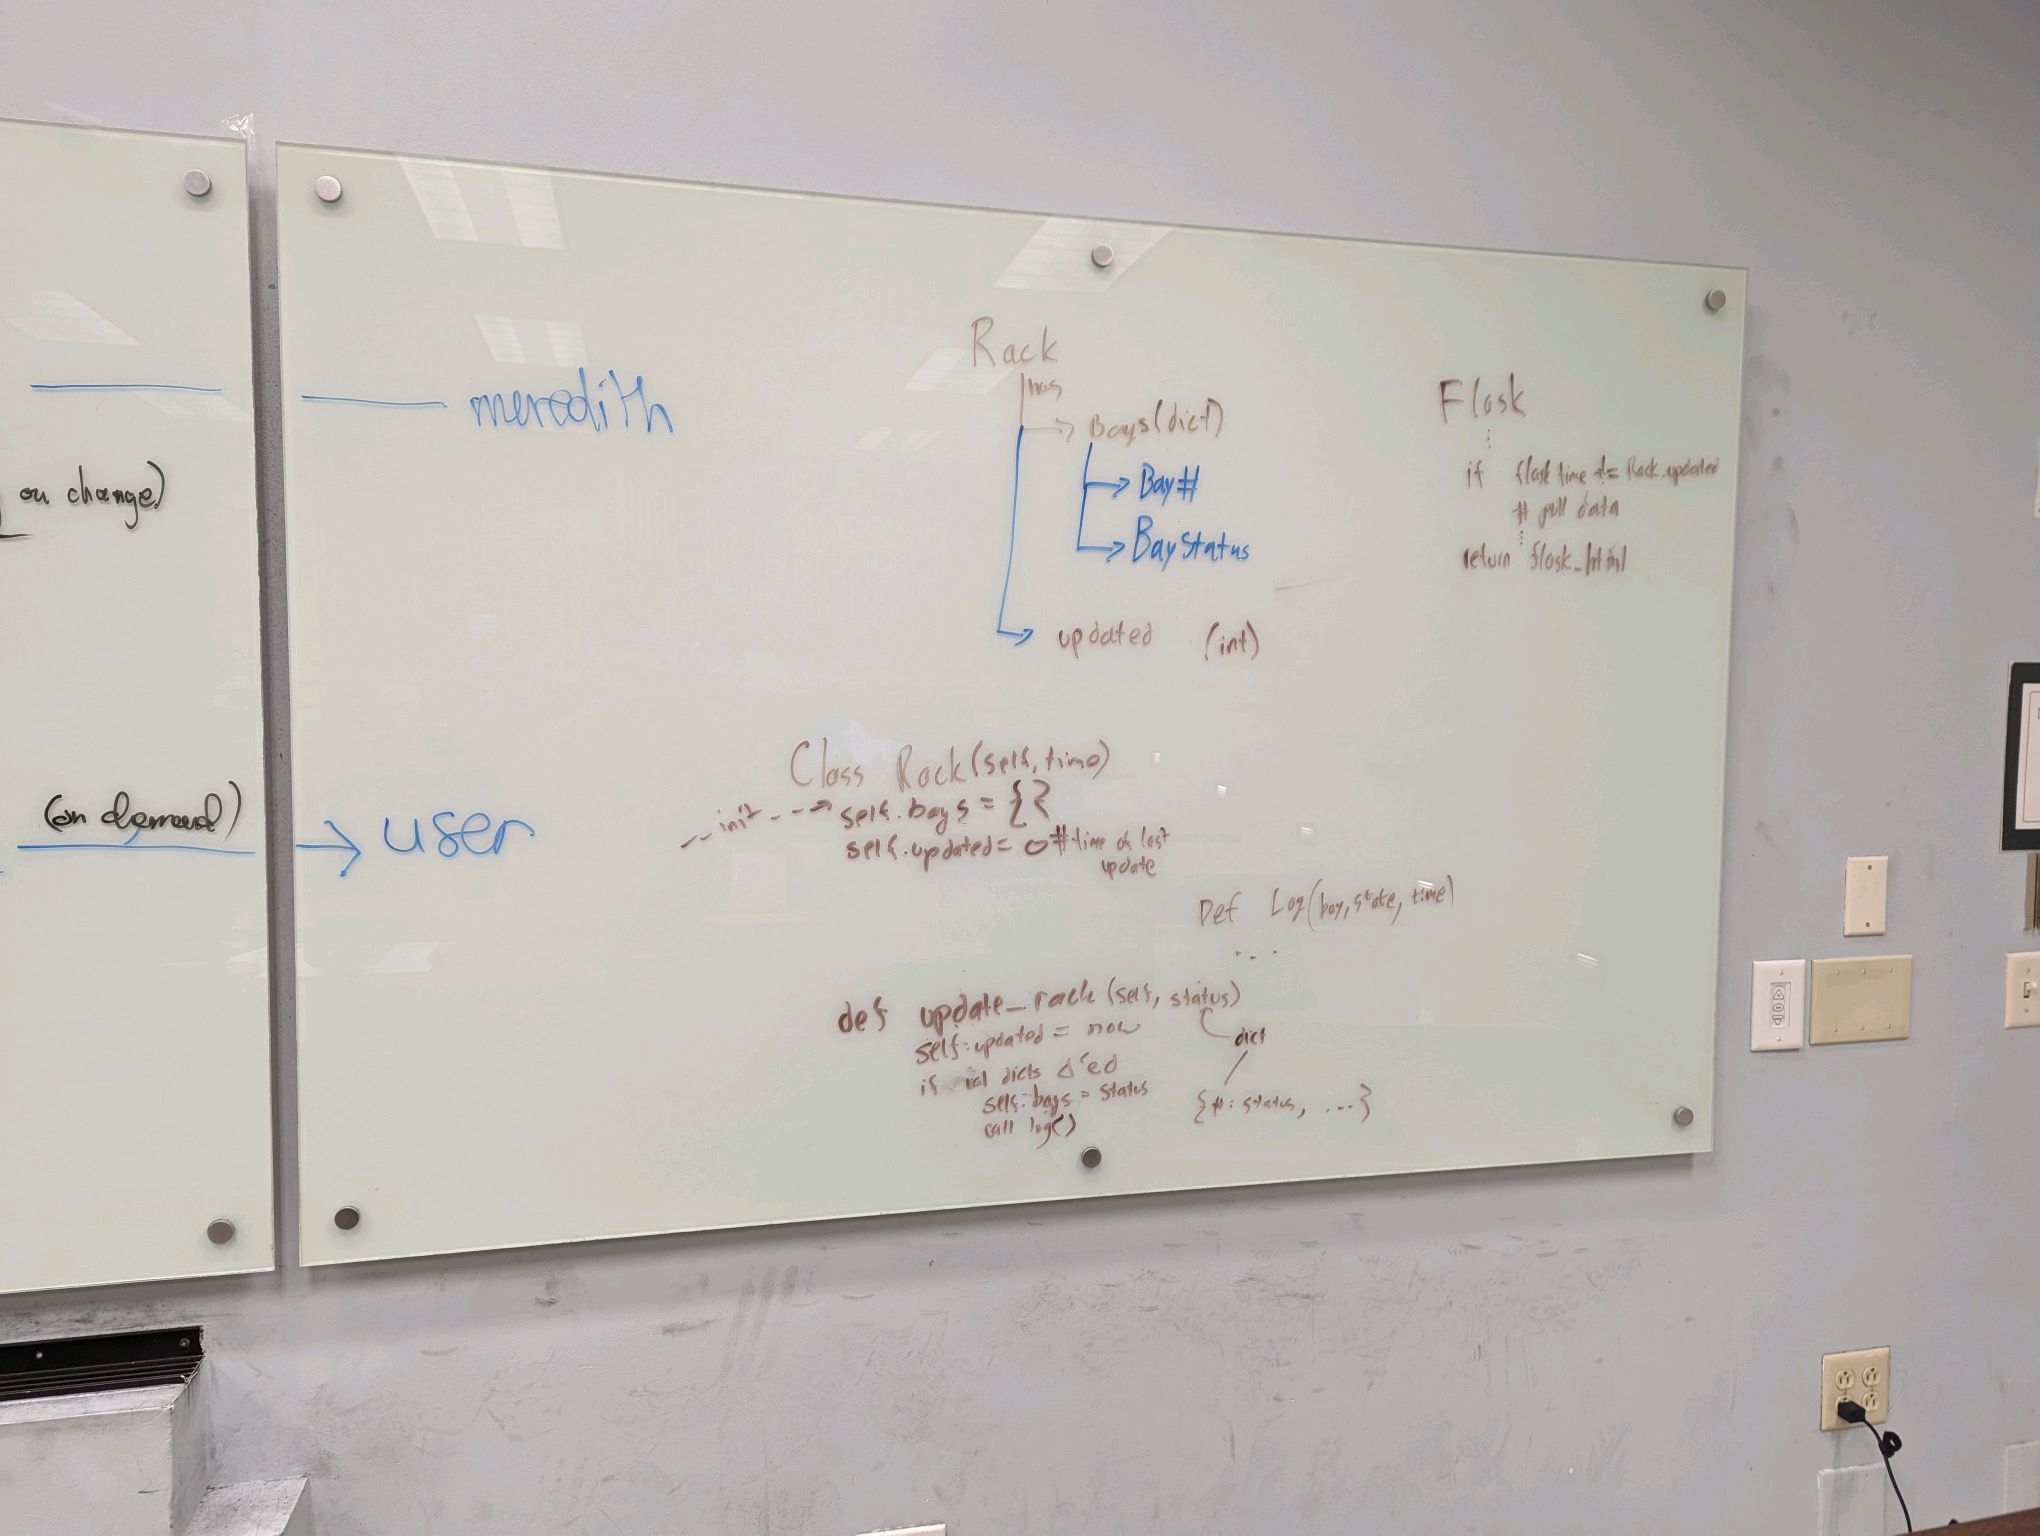 on change)
meredith
(on demand)
user
Rack
has
Bays (dict)
Bay#
Bay Status
updated (int)
Flask
if flask time != Rack.updated
# pull data
return flask_html
Class Rack(self, time)
__init__ → self.bays = {}
self.updated = 0 # time of last
update
Def Log(bay, state, time)
...
def update_rack (self, status)
self.updated = now
if dicts Δ'ed
self.bays = status
call log()
dict
{#: status, ...}